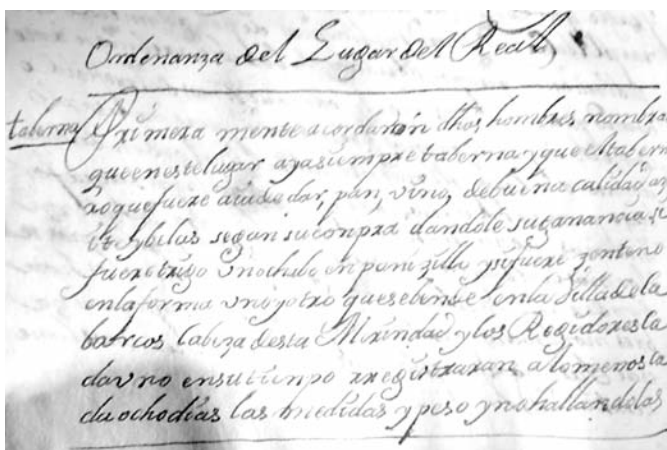 Ordenanza del Lugar del Real,
taberna Primera mente acordaron dhos, hombres, nombra
que en este lugar aya siempre taberna y que el tabern
ro que fuere a iude dar, pan, vino, de buena calidad az
ite y belas segun su compra dandole su ganancia, si
fuere trigo un ochabo en panizillo y si fuere zenteno
en la forma uno y otro que se bende en la Villa de la
barcos cabeza desta Mirindad y los Regidores ca
da uno en su tienpo rregistraran a lo menos ca
da ocho dias las medidas y peso y no hallandolas